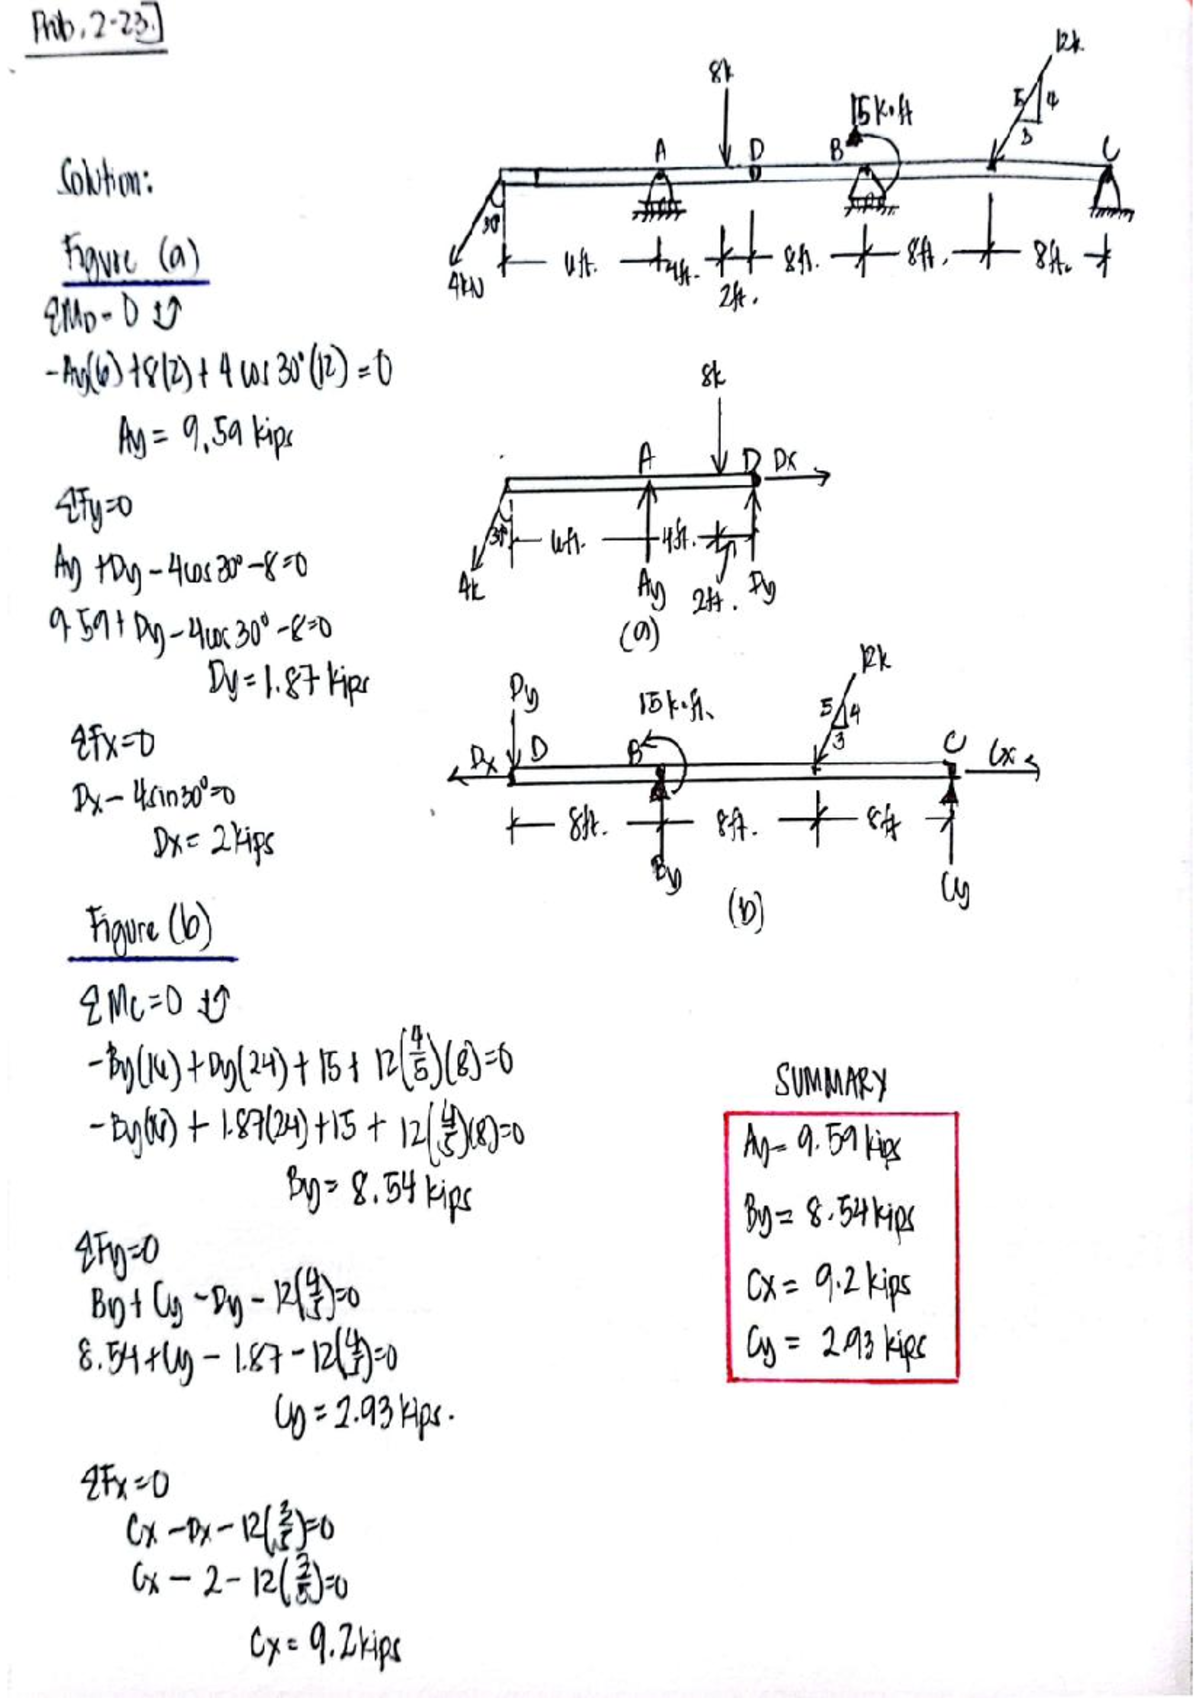 Prob. 2-23.
8k
12k
15 k·ft
5
4
3
A
D
B
C
30°
4kN
6ft.
4ft.
2ft.
8ft.
8ft.
8ft.
Solution:
Figure (a)
ΣMD = 0 ↺
-Ay(6) + 8(2) + 4 cos 30° (12) = 0
Ay = 9.59 kips
ΣFy=0
Ay + Dy - 4cos 30° - 8 = 0
9.59 + Dy - 4cos 30° - 8 = 0
Dy = 1.87 kips
ΣFx=0
Dx - 4sin30° = 0
Dx = 2 kips
8k
A
D
Dx
30°
4k
6ft.
4ft.
2ft.
Ay
Dy
(a)
12k
5
4
3
Dy
15 k·ft.
Dx
D
B
C
Cx
8ft.
8ft.
8ft
By
Cy
(b)
Figure (b)
ΣMC = 0 ↺
-By(16) + Dy(24) + 15 + 12(4/5)(8) = 0
-By(16) + 1.87(24) + 15 + 12(4/5)(8) = 0
By = 8.54 kips
ΣFy=0
By + Cy - Dy - 12(4/5) = 0
8.54 + Cy - 1.87 - 12(4/5) = 0
Cy = 2.93 kips.
ΣFx = 0
Cx - Dx - 12(3/5) = 0
Cx - 2 - 12(3/5) = 0
Cx = 9.2 kips
SUMMARY
Ay = 9.59 kips
By = 8.54 kips
Cx = 9.2 kips
Cy = 2.93 kips